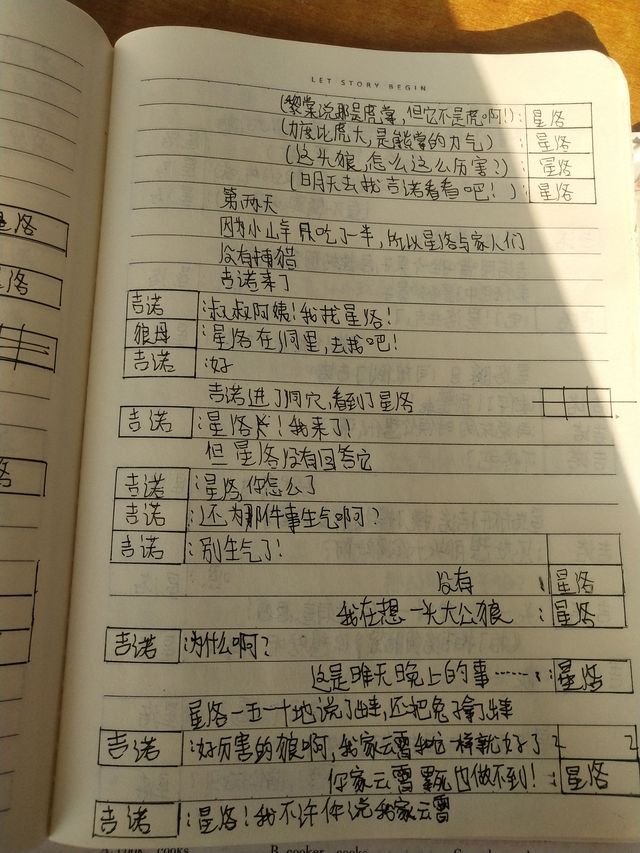 LET STORY BEGIN
(黎棠说那是虎掌,但它不是虎啊!):星洛
(力度比虎大,是熊掌的力气):星洛
(这头狼,怎么这么厉害?):星洛
(明天去找吉诺看看吧!):星洛
第两天
因为小山羊只吃了一半,所以星洛与家人们
没有捕猎
吉诺来了
吉诺:叔叔阿姨!我找星洛!
狼母:星洛在洞里,去找吧!
吉诺:好
吉诺进了洞穴,看到了星洛
吉诺:星洛!我来了!
但星洛没有回答它
吉诺:星洛,你怎么了
吉诺:还为那件事生气啊?
吉诺:别生气了!
没有:星洛
我在想一头大公狼:星洛
吉诺:为什么啊?
这是昨天晚上的事……:星洛
星洛一五一十地说了出来,还把兔子拿了出来
吉诺:好厉害的狼啊,我家云霄和它一样就好了
你家云霄累死也做不到!:星洛
吉诺:星洛!我不许你说我家云霄
B.cooker, cooks